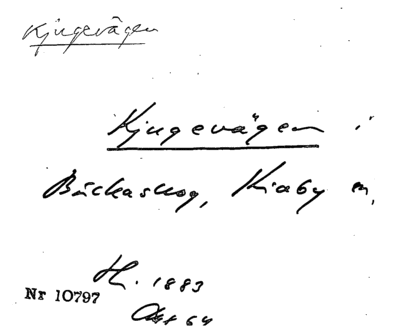 Kjugevägen
Kjugevägen i
Bäckaskog, Kiaby sn,
H. 1883
Nr 10797
64